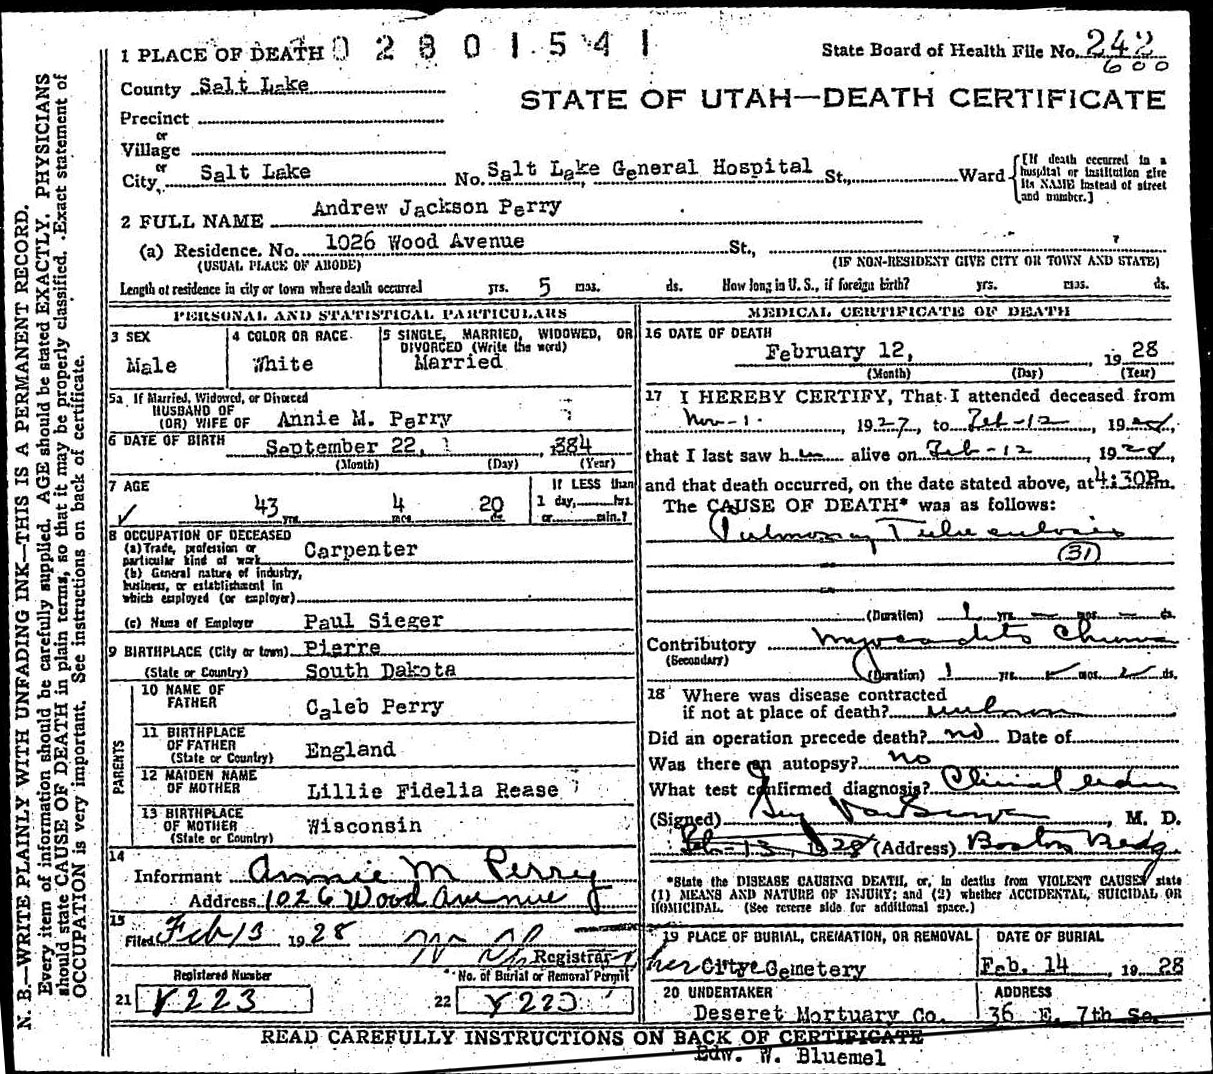 1 PLACE OF DEATH 0 2 8 0 1 5 4 1 State Board of Health File No. 242
600
County Salt Lake
STATE OF UTAH—DEATH CERTIFICATE
Precinct
or
Village
or
City, Salt Lake No. Salt Lake General Hospital St., Ward [If death occurred in a hospital or institution give its NAME instead of street and number.]
2 FULL NAME Andrew Jackson Perry
(a) Residence. No. 1026 Wood Avenue St.,
(USUAL PLACE OF ABODE) (IF NON-RESIDENT GIVE CITY OR TOWN AND STATE)
Length of residence in city or town where death occurred yrs. 5 mos. ds. How long in U. S., if foreign birth? yrs. mos. ds.
PERSONAL AND STATISTICAL PARTICULARS
3 SEX 4 COLOR OR RACE 5 SINGLE, MARRIED, WIDOWED, OR
DIVORCED (Write the word)
Male White Married
5a If Married, Widowed, or Divorced
HUSBAND OF
(OR) WIFE OF Annie M. Perry
6 DATE OF BIRTH September 22, 1884
(Month) (Day) (Year)
7 AGE If LESS than
43 yrs. 4 mos. 20 ds. 1 day, hrs.
or min.?
8 OCCUPATION OF DECEASED
(a) Trade, profession or
particular kind of work Carpenter
(b) General nature of industry,
business, or establishment in
which employed (or employer)
(c) Name of Employer Paul Sieger
9 BIRTHPLACE (City or town) Pierre
(State or Country) South Dakota
PARENTS
10 NAME OF
FATHER Caleb Perry
11 BIRTHPLACE
OF FATHER
(State or Country) England
12 MAIDEN NAME
OF MOTHER Lillie Fidelia Rease
13 BIRTHPLACE
OF MOTHER
(State or Country) Wisconsin
14
Informant Annie M Perry
Address 1026 Wood Avenue
15
Filed Feb 13 1928
Registrar
Registered Number No. of Burial or Removal Permit
21 223 22 223
MEDICAL CERTIFICATE OF DEATH
16 DATE OF DEATH
February 12, 1928
(Month) (Day) (Year)
17 I HEREBY CERTIFY, That I attended deceased from
Nov-1- 1927, to Feb-12, 1928,
that I last saw him alive on Feb-12, 1928,
and that death occurred, on the date stated above, at 4:30P.m.
The CAUSE OF DEATH* was as follows:
Pulmonary Tuberculosis
(31)
(Duration) 1 yrs. – mos. – ds.
Contributory Myocarditis Chronic
(Secondary)
(Duration) 1 yrs. mos. ds.
18 Where was disease contracted
if not at place of death? unknown
Did an operation precede death? no Date of
Was there an autopsy? no
What test confirmed diagnosis? Clinical
(Signed) , M. D.
Feb-13, 1928 (Address) Boston Bldg
*State the DISEASE CAUSING DEATH, or, in deaths from VIOLENT CAUSES, state
(1) MEANS AND NATURE OF INJURY; and (2) whether ACCIDENTAL, SUICIDAL OR
HOMICIDAL. (See reverse side for additional space.)
19 PLACE OF BURIAL, CREMATION, OR REMOVAL DATE OF BURIAL
City Cemetery Feb. 14, 1928
20 UNDERTAKER ADDRESS
Deseret Mortuary Co. 36 E. 7th So.
READ CAREFULLY INSTRUCTIONS ON BACK OF CERTIFICATE
Edw. W. Bluemel
N. B.—WRITE PLAINLY WITH UNFADING INK—THIS IS A PERMANENT RECORD.
Every item of information should be carefully supplied. AGE should be stated EXACTLY. PHYSICIANS
should state CAUSE OF DEATH in plain terms, so that it may be properly classified. Exact statement of
OCCUPATION is very important. See instructions on back of certificate.